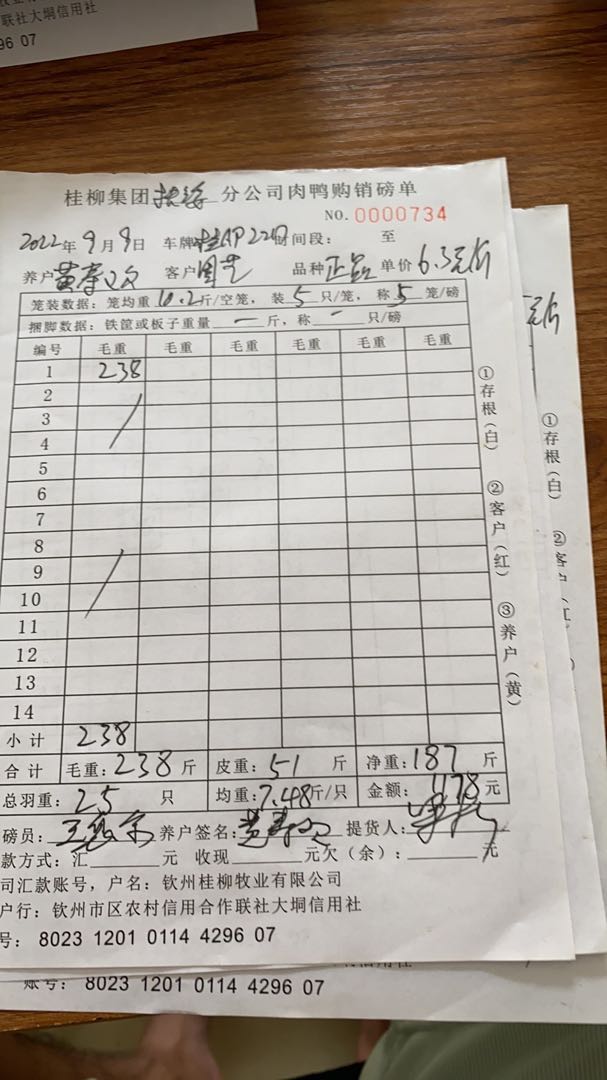 联社大垌信用社
96 07
桂柳集团 分公司肉鸭购销磅单
NO. 0000734
2022年9月9日 车牌 时间段: 至
养户 客户 品种正品 单价6.3元/斤
笼装数据: 笼均重10.2斤/空笼, 装5只/笼, 称5笼/磅
捆脚数据: 铁筐或板子重量—斤, 称—只/磅
编号 毛重 毛重 毛重 毛重 毛重 毛重
1 238
2
3
4
5
6
7
8
9
10
11
12
13
14
小计 238
合计 毛重: 238斤 皮重: 51斤 净重: 187斤
总羽重: 25只 均重: 7.48斤/只 金额: 1178元
磅员: 养户签名: 提货人:
款方式: 汇 元 收现 元欠(余): 元
司汇款账号, 户名: 钦州桂柳牧业有限公司
户行: 钦州市区农村信用合作联社大垌信用社
号: 8023 1201 0114 4296 07
①存根(白) ②客户(红) ③养户(黄)
元/斤
①存根(白)
②客户(红
账号: 8023 1201 0114 4296 07